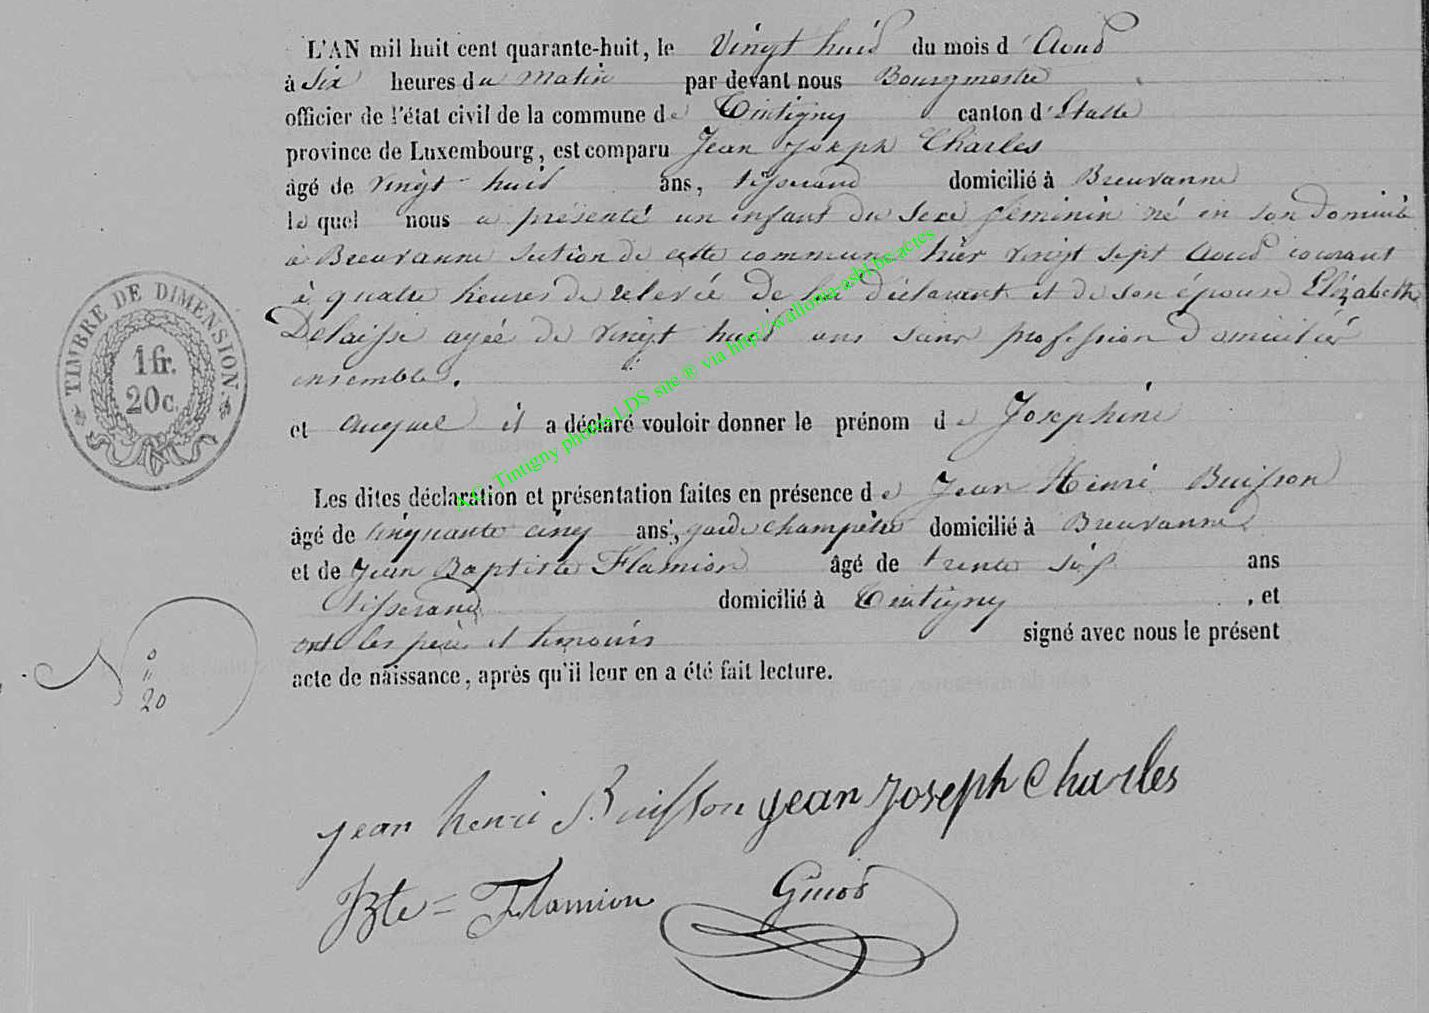 L'AN mil huit cent quarante-huit, le vingt huit du mois d'Aout
à six heures du matin par devant nous Bourgmestre
officier de l'état civil de la commune de Tintigny canton d'Etalle
province de Luxembourg, est comparu Jean Joseph Charles
âgé de vingt huit ans, tisserand domicilié à Breuvanne
le quel nous a présenté un enfant du sexe féminin né en son domicile
à Breuvanne section de cette commune hier vingt sept Aout courant
à quatre heures de relevée de lui déclarant et de son épouse Elizabeth
Delaisse agée de vingt huit ans sans profession domiciliée
ensemble.
et auquel il a déclaré vouloir donner le prénom de Josephine
Les dites déclaration et présentation faites en présence de Jean Henri Buisson
âgé de cinquante cinq ans, garde champêtre domicilié à Breuvanne
et de Jean Baptiste Flamion âgé de trente six ans
tisserand domicilié à Tintigny, et
ont les père et temoins signé avec nous le présent
acte de naissance, après qu'il leur en a été fait lecture.
TIMBRE DE DIMENSION.
1 fr.
20 c.
N° 20
A.G. Tintigny photos LDS site ® via http://wallonia-asbl.be.actes
jean henri Buisson jean joseph Charles
JBte = Flamion